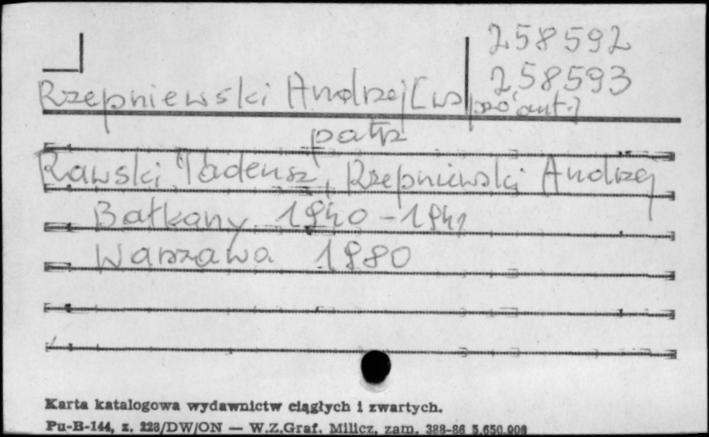 258592
258593
Rzepniewski Andrzej [współaut.]
patrz
Rawski Tadeusz, Rzepniewski Andrzej
Bałkany 1940-1941
Warszawa 1980
Karta katalogowa wydawnictw ciągłych i zwartych.
Pu-B-144, z. 228/DW/ON — W.Z.Graf. Milicz, zam. 388-86 5.650.000